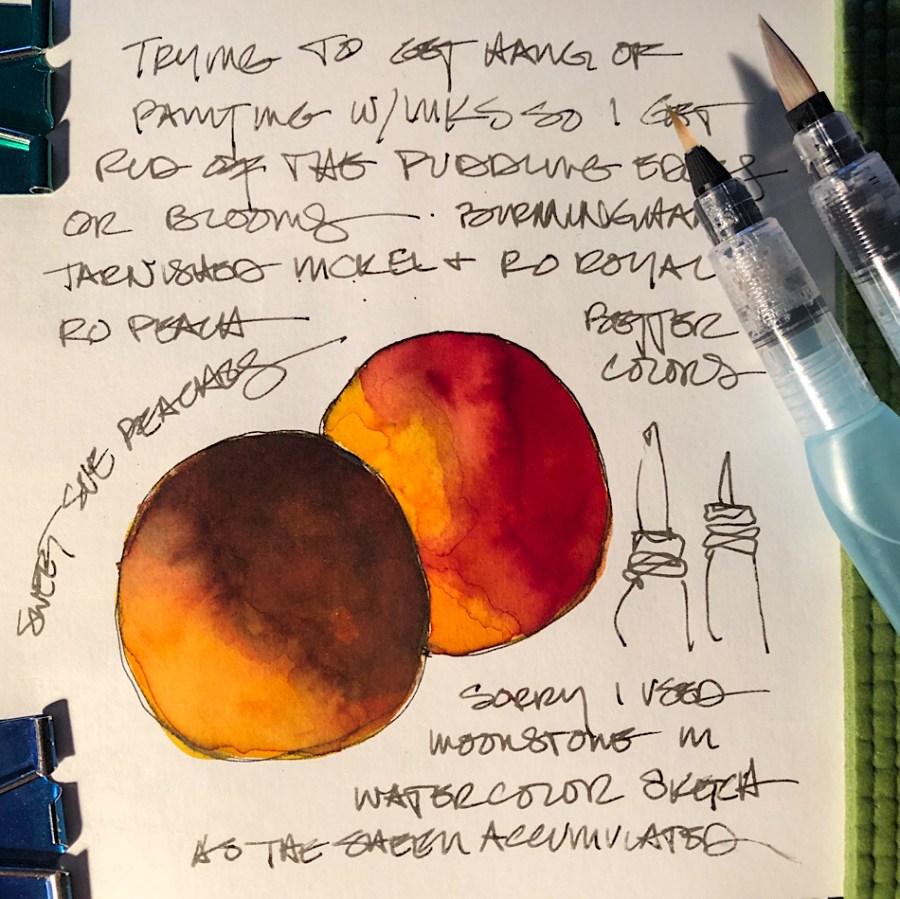 TRYING TO GET HANG OF
PAINTING W/INKS SO I GET
RID OF THE PUDDLING EDGES
OR BLOOMS. BIRMINGHAM
TARNISHED NICKEL + RO ROYAL
RO PEACH
BETTER
COLORS
SWEET SUE PEACHES
SORRY I USED
MOONSTONE IN
WATERCOLOR SKETCH
AS THE SHEEN ACCUMULATED